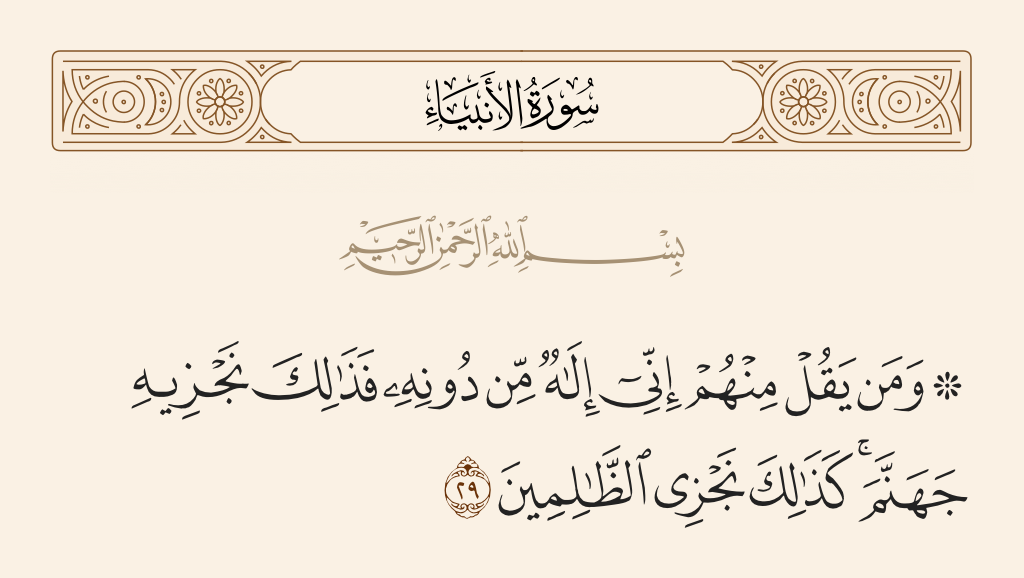 سُورَةُ الأَنبِيَاءِ
بِسْمِ ٱللَّهِ ٱلرَّحْمَٰنِ ٱلرَّحِيمِ
۞ وَمَن يَقُلْ مِنْهُمْ إِنِّىٓ إِلَٰهٌ مِّن دُونِهِۦ فَذَٰلِكَ نَجْزِيهِ
جَهَنَّمَ ۚ كَذَٰلِكَ نَجْزِى ٱلظَّٰلِمِينَ ٢٩